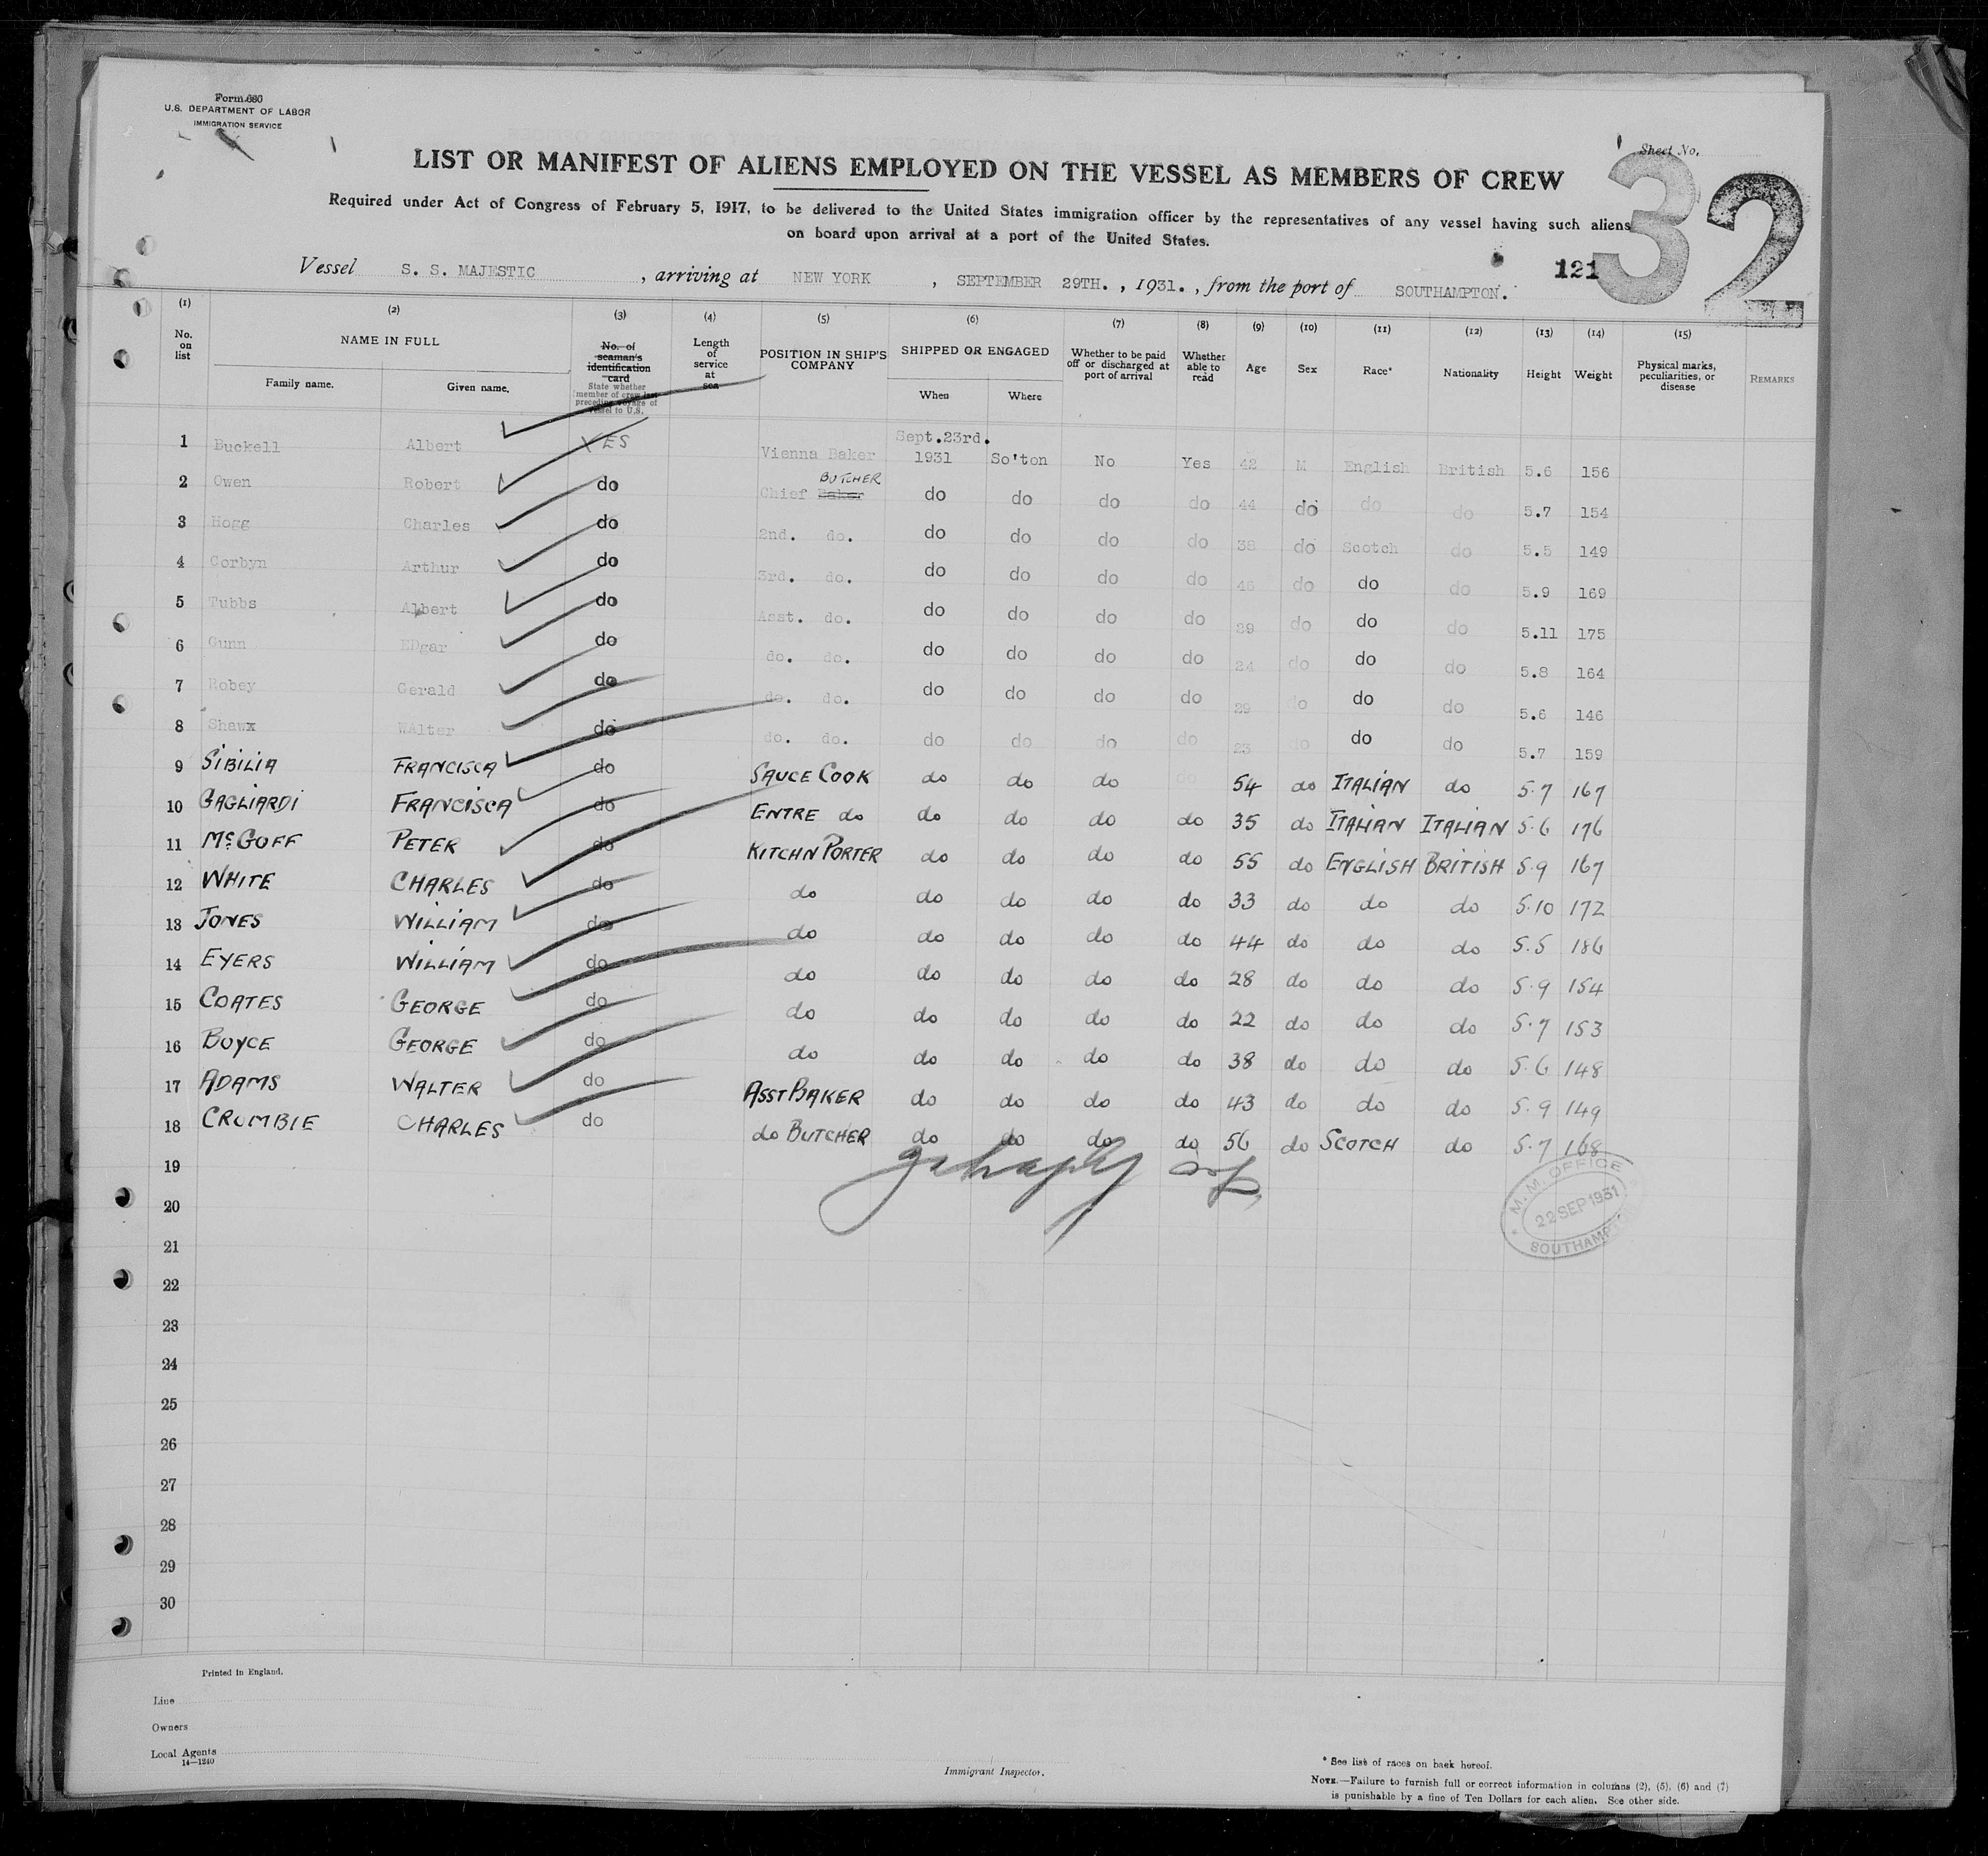 Form 680
U.S. DEPARTMENT OF LABOR
IMMIGRATION SERVICE
Sheet No.
32
LIST OR MANIFEST OF ALIENS EMPLOYED ON THE VESSEL AS MEMBERS OF CREW
Required under Act of Congress of February 5, 1917, to be delivered to the United States immigration officer by the representatives of any vessel having such aliens
on board upon arrival at a port of the United States.
121
Vessel S. S. MAJESTIC , arriving at NEW YORK , SEPTEMBER 29TH. , 1931. , from the port of SOUTHAMPTON.
(1) (2) (3) (4) (5) (6) (7) (8) (9) (10) (11) (12) (13) (14) (15)
No. on list NAME IN FULL Family name. Given name. No. of seaman's identification card State whether member of crew last preceding voyage of vessel to U.S. Length of service at sea POSITION IN SHIP'S COMPANY SHIPPED OR ENGAGED When Where Whether to be paid off or discharged at port of arrival Whether able to read Age Sex Race* Nationality Height Weight Physical marks, peculiarities, or disease REMARKS
1 Buckell Albert YES Vienna Baker Sept.23rd. 1931 So'ton No Yes 42 M English British 5.6 156
2 Owen Robert do Chief Baker BUTCHER do do do do 44 do do do 5.7 154
3 Hogg Charles do 2nd. do. do do do do 38 do Scotch do 5.5 149
4 Corbyn Arthur do 3rd. do. do do do do 46 do do do 5.9 169
5 Tubbs Albert do Asst. do. do do do do 29 do do do 5.11 175
6 Gunn EDgar do do. do. do do do do 24 do do do 5.8 164
7 Robey Gerald do do. do. do do do do 29 do do do 5.6 146
8 Shawx WAlter do do. do. do do do do 23 do do do 5.7 159
9 SIBILIA FRANCISCA do SAUCE COOK do do do do 54 do ITALIAN do 5.7 167
10 GAGLIARDI FRANCISCA do ENTRE do do do do do 35 do ITALIAN ITALIAN 5.6 176
11 McGOFF PETER do KITCHN PORTER do do do do 55 do ENGLISH BRITISH 5.9 167
12 WHITE CHARLES do do do do do do 33 do do do 5.10 172
13 JONES WILLIAM do do do do do do 44 do do do 5.5 186
14 EYERS WILLIAM do do do do do do 28 do do do 5.9 154
15 COATES GEORGE do do do do do do 22 do do do 5.7 153
16 BOYCE GEORGE do do do do do do 38 do do do 5.6 148
17 ADAMS WALTER do ASST BAKER do do do do 43 do do do 5.9 149
18 CROMBIE CHARLES do do BUTCHER do do do do 56 do SCOTCH do 5.7 168
19
M. M. OFFICE
22 SEP 1931
SOUTHAMPTON
20
21
22
23
24
25
26
27
28
29
30
Printed in England.
Line
Owners
Local Agents
14—1240
Immigrant Inspector.
* See list of races on back hereof.
NOTE.—Failure to furnish full or correct information in columns (2), (5), (6) and (7)
is punishable by a fine of Ten Dollars for each alien. See other side.